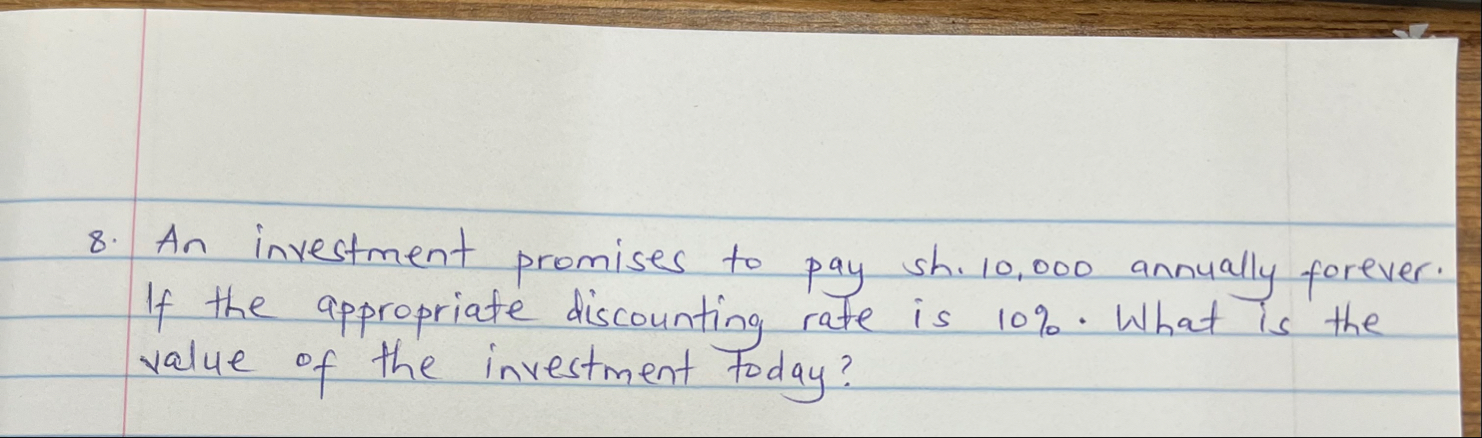 8. An investment promises to pay sh. 10,000 annually forever.
If the appropriate discounting rate is 10%. What is the
value of the investment today?